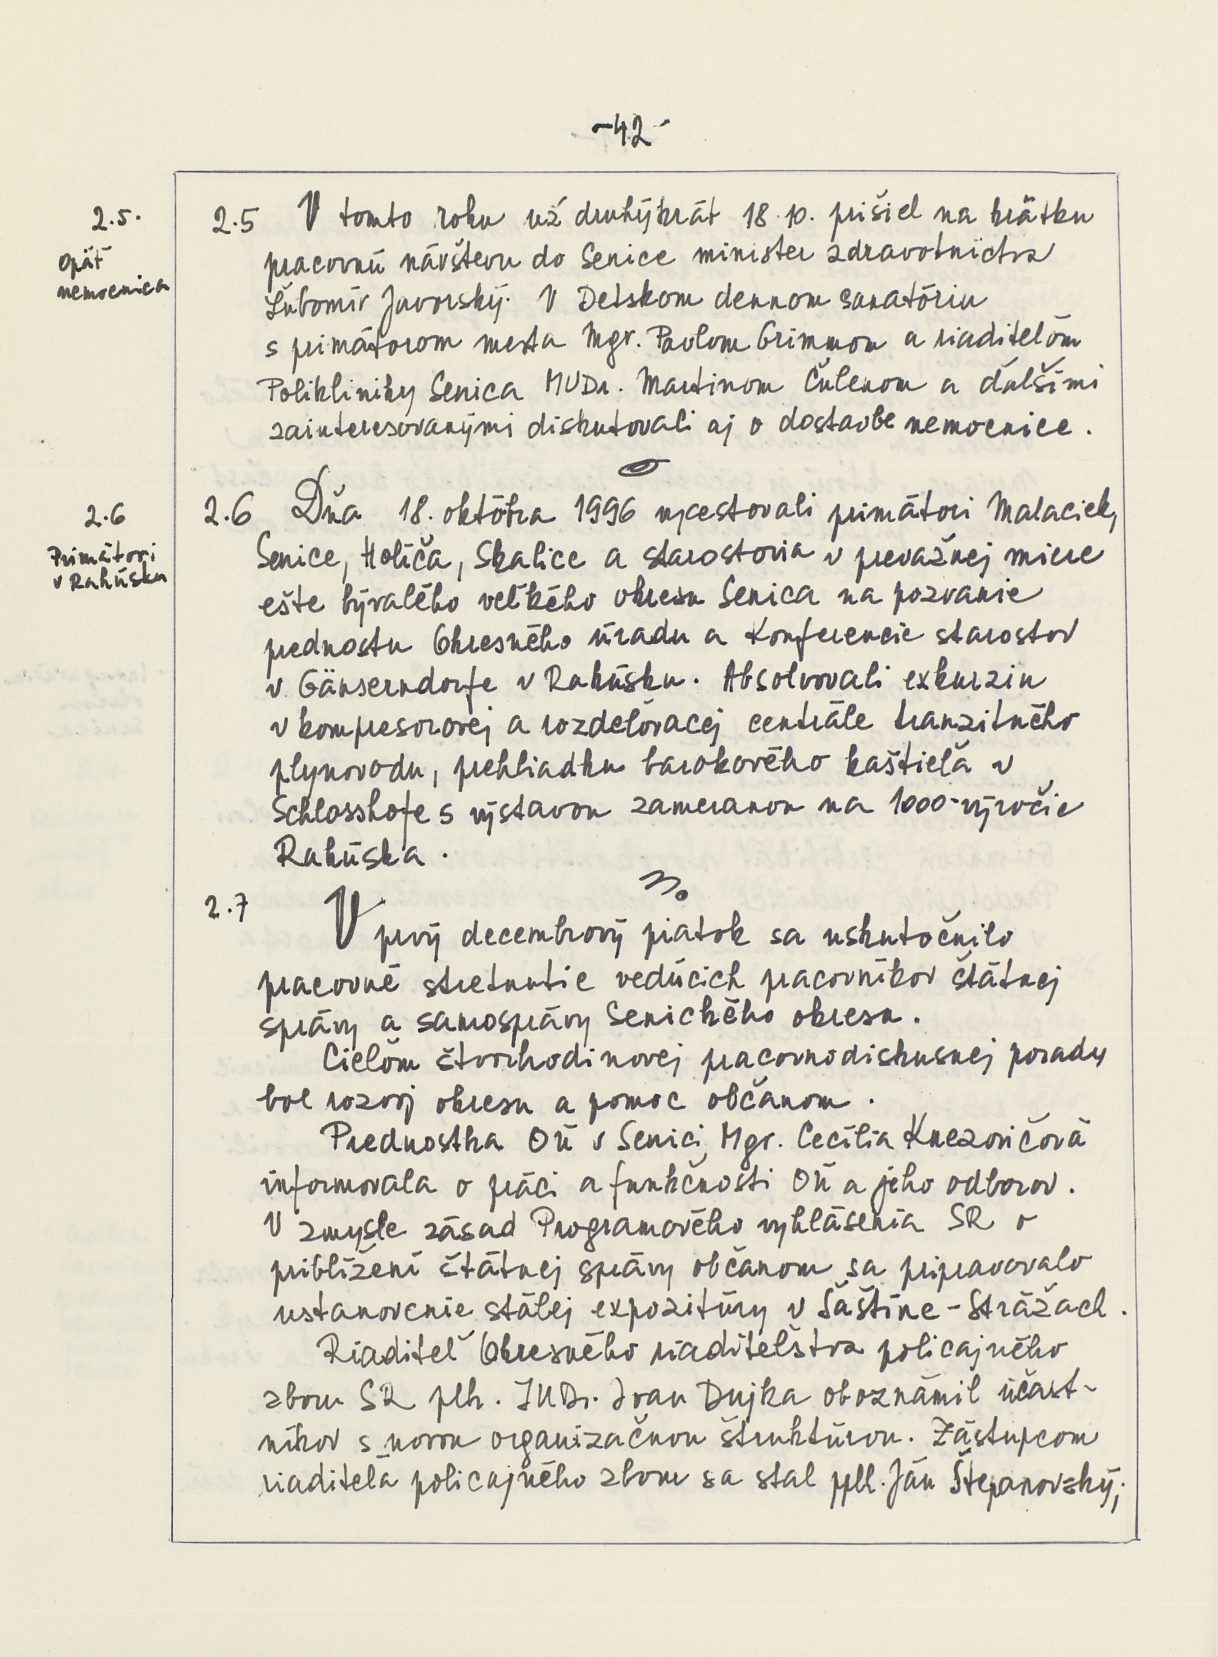 -42-
2.5.
Opäť
nemocnica
2.5 V tomto roku už druhýkrát 18.10. prišiel na krátku
pracovnú návštevu do Senice minister zdravotníctva
Ľubomír Javorský. V Detskom dennom sanatóriu
s primátorom mesta Mgr. Pavlom Grimmom a riaditeľom
Polikliniky Senica MUDr. Martinom Čulenom a ďalšími
zainteresovanými diskutovali aj o dostavbe nemocnice.
2.6
Primátori
v Rakúsku
2.6 Dňa 18. októbra 1996 vycestovali primátori Malaciek,
Senice, Holíča, Skalice a starostovia v prevažnej miere
ešte bývalého veľkého okresu Senica na pozvanie
prednostu Okresného úradu a Konferencie starostov
v Gänserndorfe v Rakúsku. Absolvovali exkurziu
v kompresorovej a rozdeľovacej centrále tranzitného
plynovodu, prehliadku barokového kaštieľa v
Schlosshofe s výstavou zameranou na 1000-výročie
Rakúska.
2.7 V prvý decembrový piatok sa uskutočnilo
pracovné stretnutie vedúcich pracovníkov štátnej
správy a samosprávy Senického okresu.
Cieľom štvorhodinovej pracovnodiskusnej porady
bol rozvoj okresu a pomoc občanom.
Prednostka OÚ v Senici Mgr. Cecília Knezovičová
informovala o práci a funkčnosti OÚ a jeho odborov.
V zmysle zásad Programového vyhlásenia SR o
priblížení štátnej správy občanom sa pripravovalo
ustanovenie stálej expozitúry v Šaštíne-Strážach.
Riaditeľ Okresného riaditeľstva policajného
zboru SR plk. JUDr. Ivan Dujka oboznámil účast-
níkov s novou organizačnou štruktúrou. Zástupcom
riaditeľa policajného zboru sa stal pplk. Ján Štepanovský,